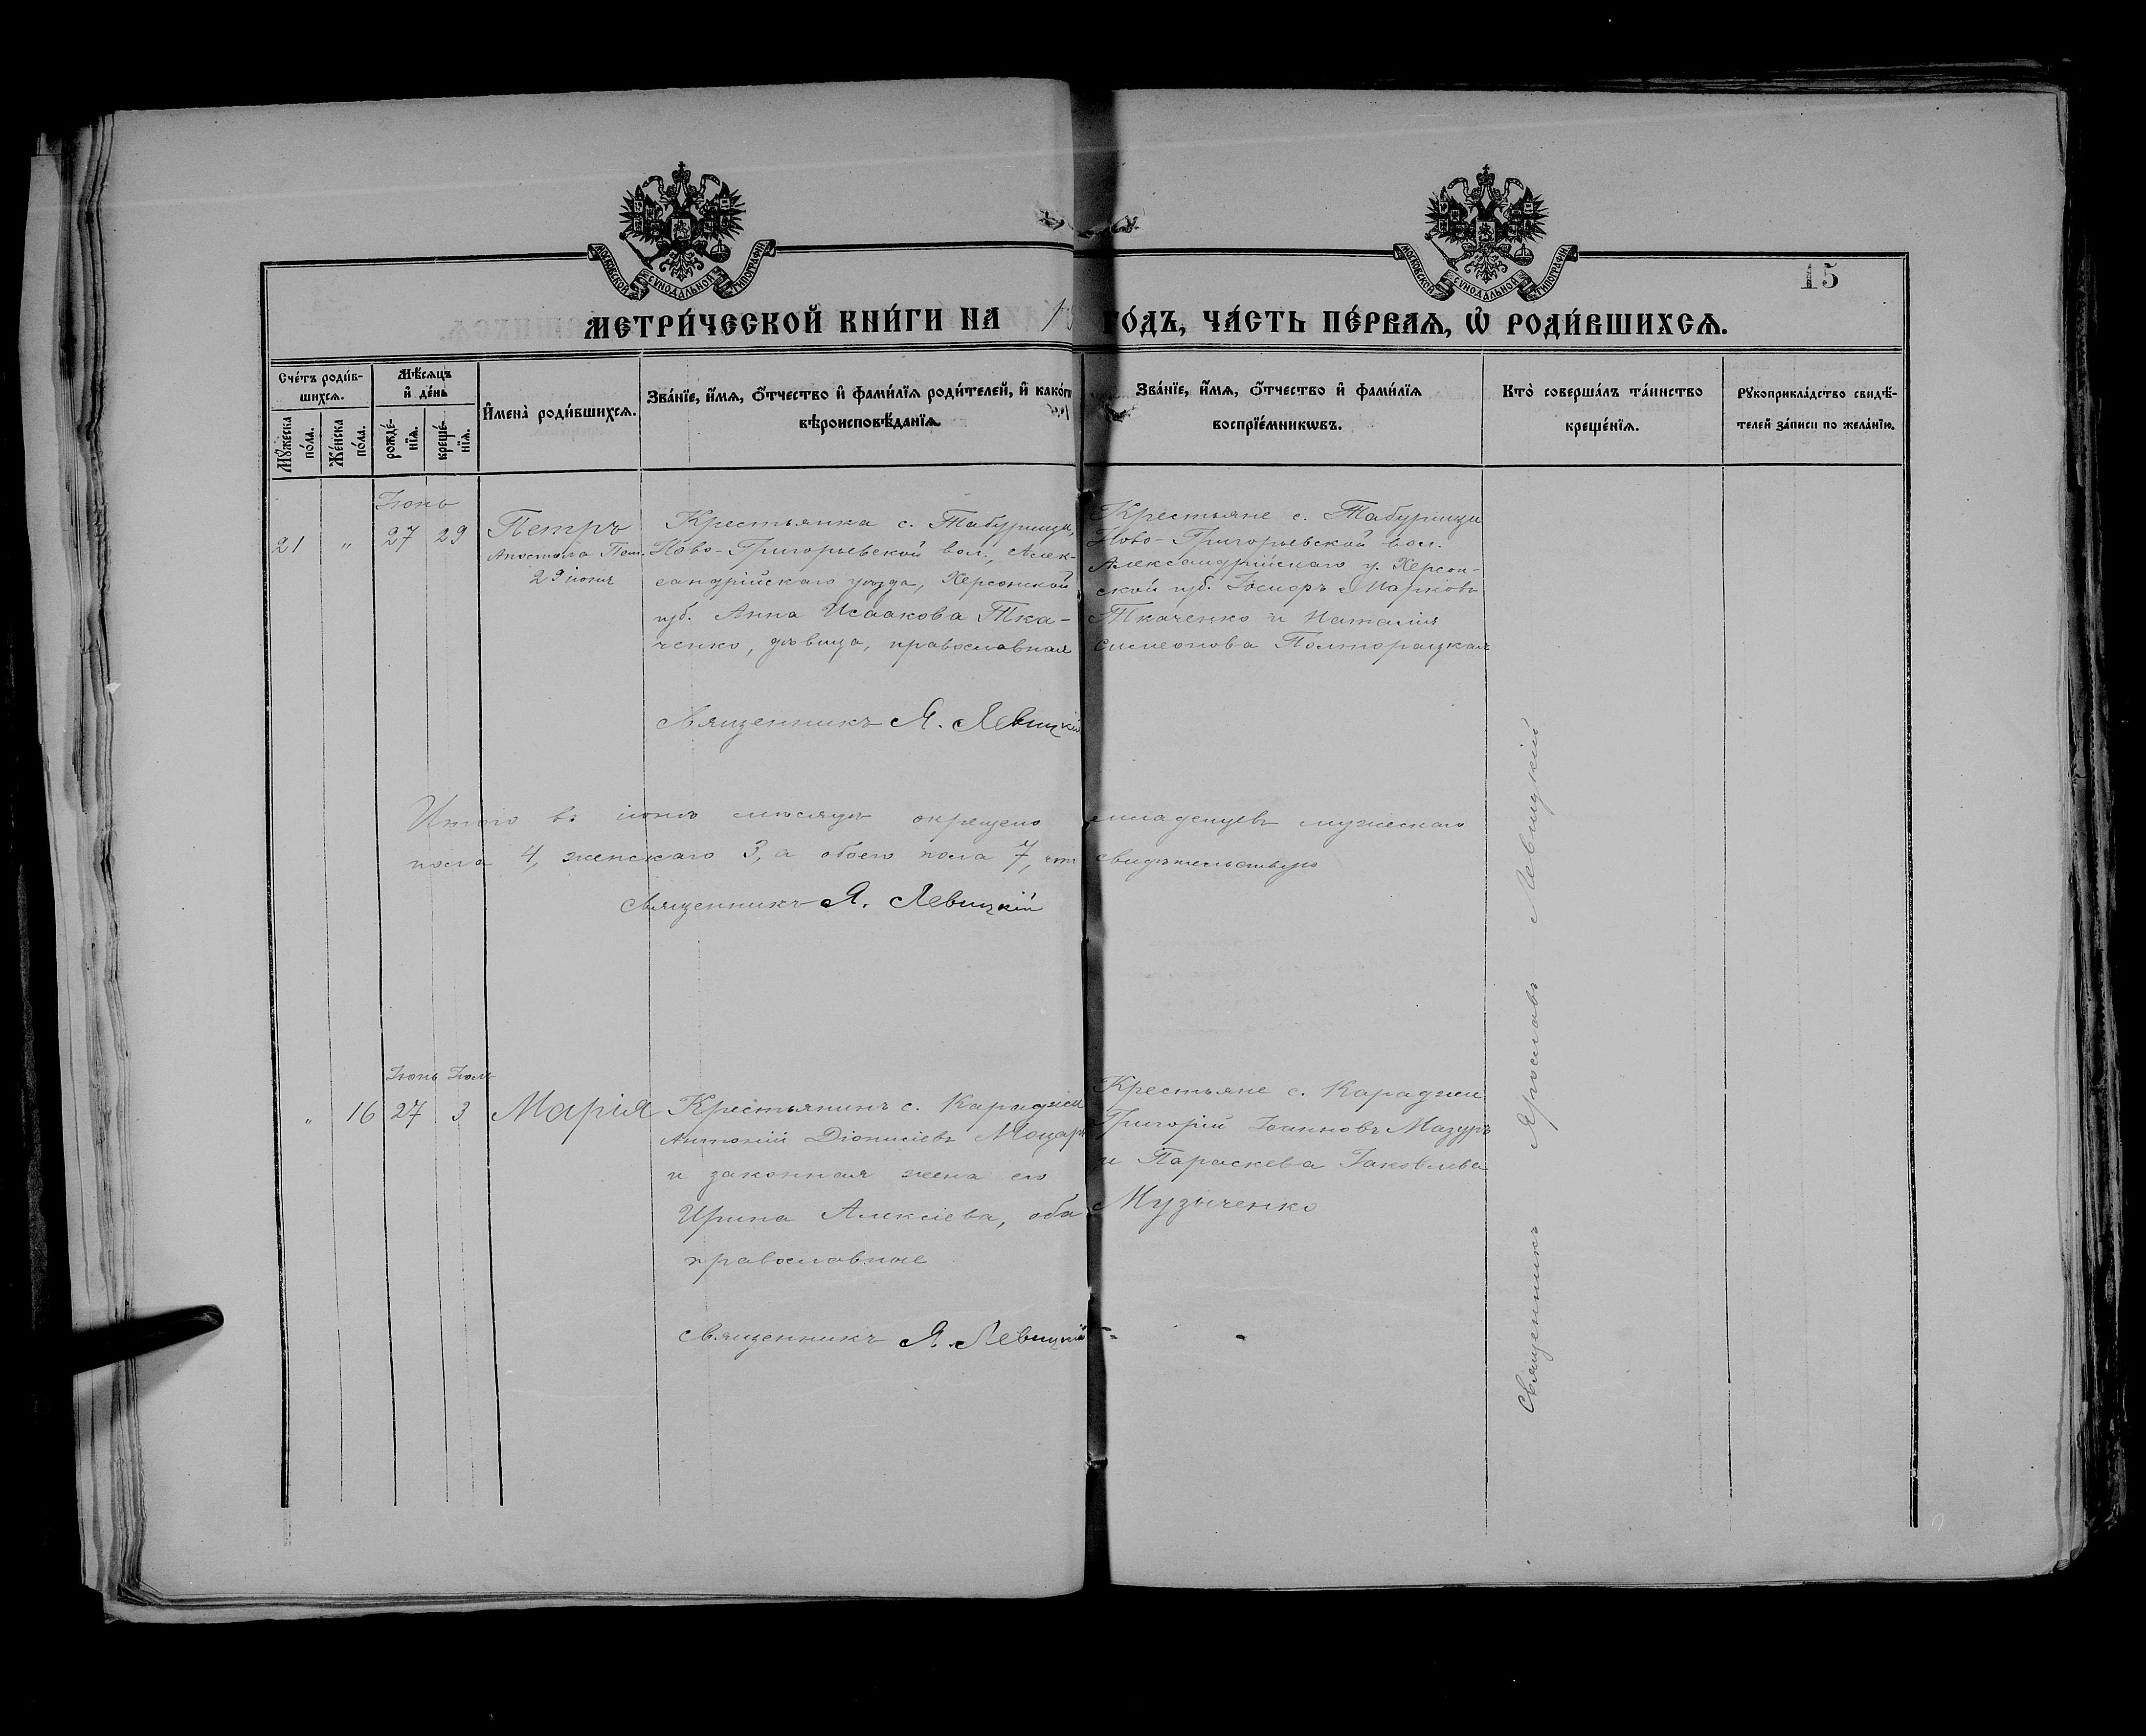 МОСКОВСКОЙ СѴНОДАЛЬНОЙ ТИПОГРАФІИ
МОСКОВСКОЙ СѴНОДАЛЬНОЙ ТИПОГРАФІИ
15
МЕТРИ́ЧЕСКОЙ КНИ́ГИ НА
ГО́ДЪ, ЧА́СТЬ ПЕ́РВАѦ, Ѡ҆ РОДИ́ВШИХСѦ.
Сче́тъ роди́в-
шихсѧ.
Мꙋ́жеска по́ла.
Же́нска по́ла.
Мѣ́сѧцъ и҆ де́нь
рожде́-нїѧ.
креще́-нїѧ.
И҆мена̀ роди́вшихсѧ.
Зва́нїе, и҆́мѧ, ѻ҆́тчество и҆ фами́лїѧ роди́телей, и҆ како́гѡ
вѣроисповѣ́данїѧ.
Зва́нїе, и҆́мѧ, ѻ҆́тчество и҆ фами́лїѧ
воспрїе́мникѡвъ.
Кто̀ соверша́лъ та́инство
креще́нїѧ.
Рꙋкоприкла́дство свидѣ́-
телей за́писи по жела́нїю.
Іюнь
21 " 27 29
Петръ
Апостола Пет.
29 іюня
Крестьянка с. Табурища,
Ново-Григорьевской вол., Алек-
сандрійскаго уѣзда, Херсонской
губ. Анна Исаакова Тка-
ченко, дѣвица, православная
Священникъ Я. Левицкій
Крестьяне с. Табурища
Ново-Григорьевской вол.
Александрійскаго у. Херсон-
ской губ. Марковъ
Ткаченко и Наталія
Симеонова Полторацкая
Итого въ іюнѣ мѣсяцѣ окрещено младенцевъ мужескаго
пола 4, женскаго 3, а обоего пола 7, что свидѣтельствую
Священникъ Я. Левицкій
Іюнь Іюль
" 16 27 3
Марія
Крестьянинъ с. Караджи
Антоній Діонисіевъ
и законная жена его
Ирина Алексіева, оба
православные
Священникъ Я. Левицкій
Крестьяне с. Караджи
Григорій Іоанновъ Мазуръ
и Параскева Іаковлева
Музыченко
Священникъ Ярославъ Левицкій